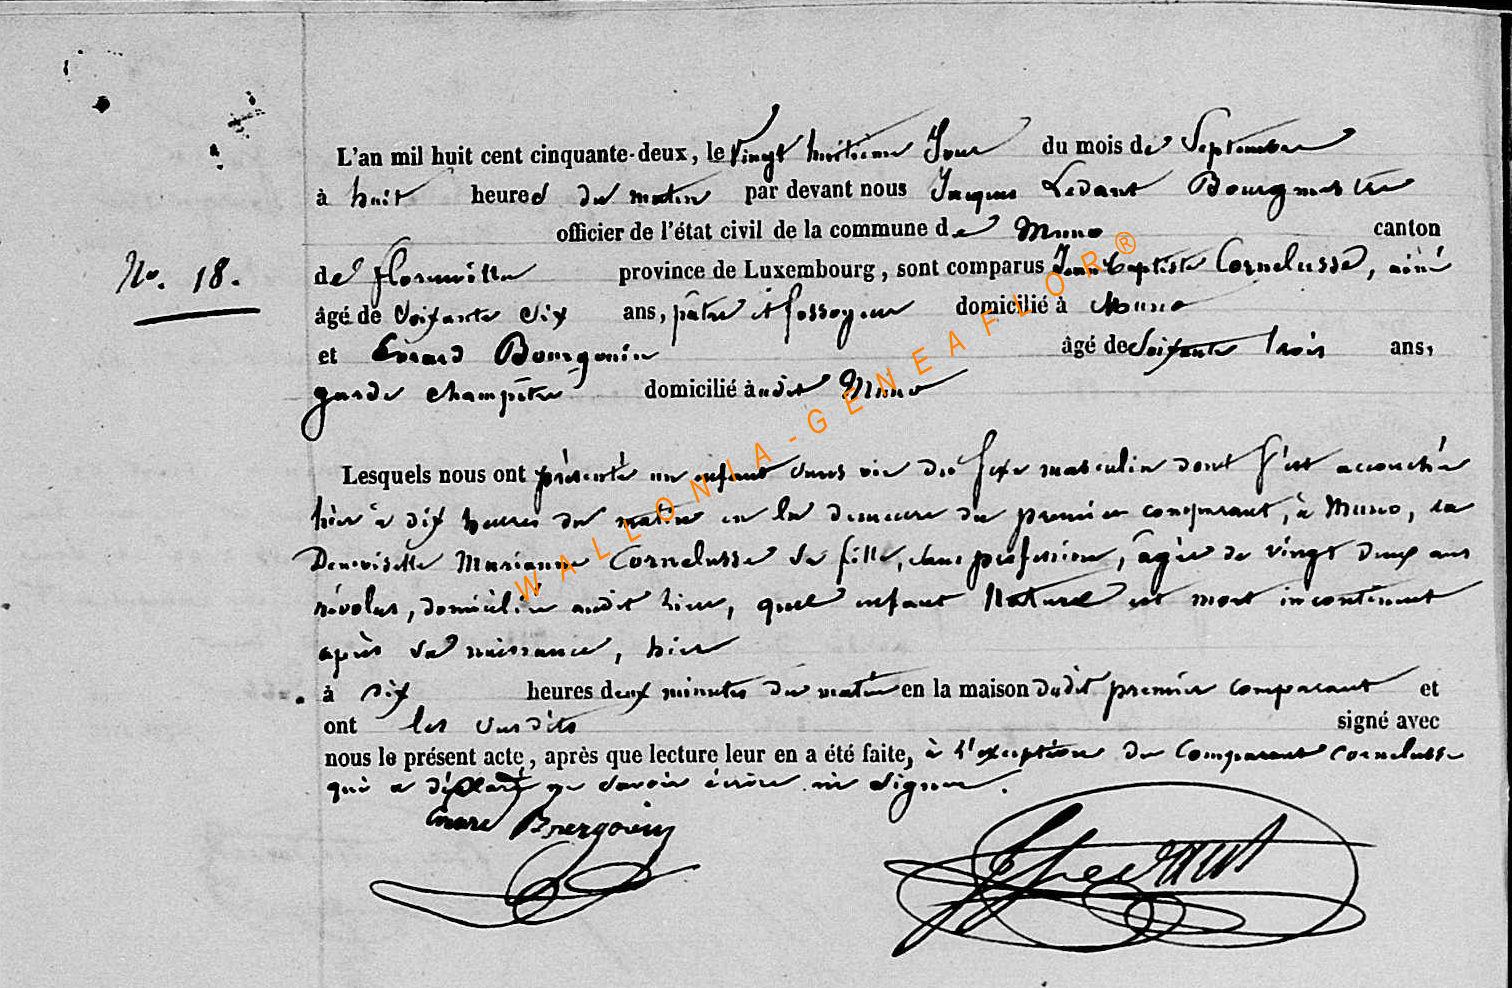 L'an mil huit cent cinquante-deux, le vingt huitième Jour du mois de Septembre
à huit heures du matin par devant nous Jacques Ledant Bourgmestre
officier de l'état civil de la commune de Muno canton
No. 18.
de florenville province de Luxembourg, sont comparus Jean Baptiste Cornelusse, aîné
âgé de Soixante Six ans, pâtre et fossoyeur domicilié à Muno
et Gérard Bourgouin âgé de Soixante trois ans,
garde champêtre domicilié audit Muno
Lesquels nous ont présenté un enfant sans vie du sexe masculin dont s'est accouchée
hier à dix heures du matin en la demeure du premier comparant, à Muno, la
Demoiselle Marianne Cornelusse sa fille, sans profession, âgée de vingt deux ans
révolus, domiciliée audit lieu, quel enfant Naturel est mort incontinent
après sa naissance, hier
à dix heures deux minutes du matin en la maison dudit premier comparant et
ont les susdits signé avec
nous le présent acte, après que lecture leur en a été faite, à l'exception du Comparant cornelusse
qui a déclaré ne savoir écrire ni signer.
Bourgouin
JJ Ledant
WALLONIA-GENEAFLOR®